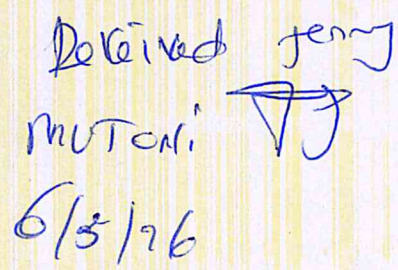 Received Jenny
MUTONi
6/5/26